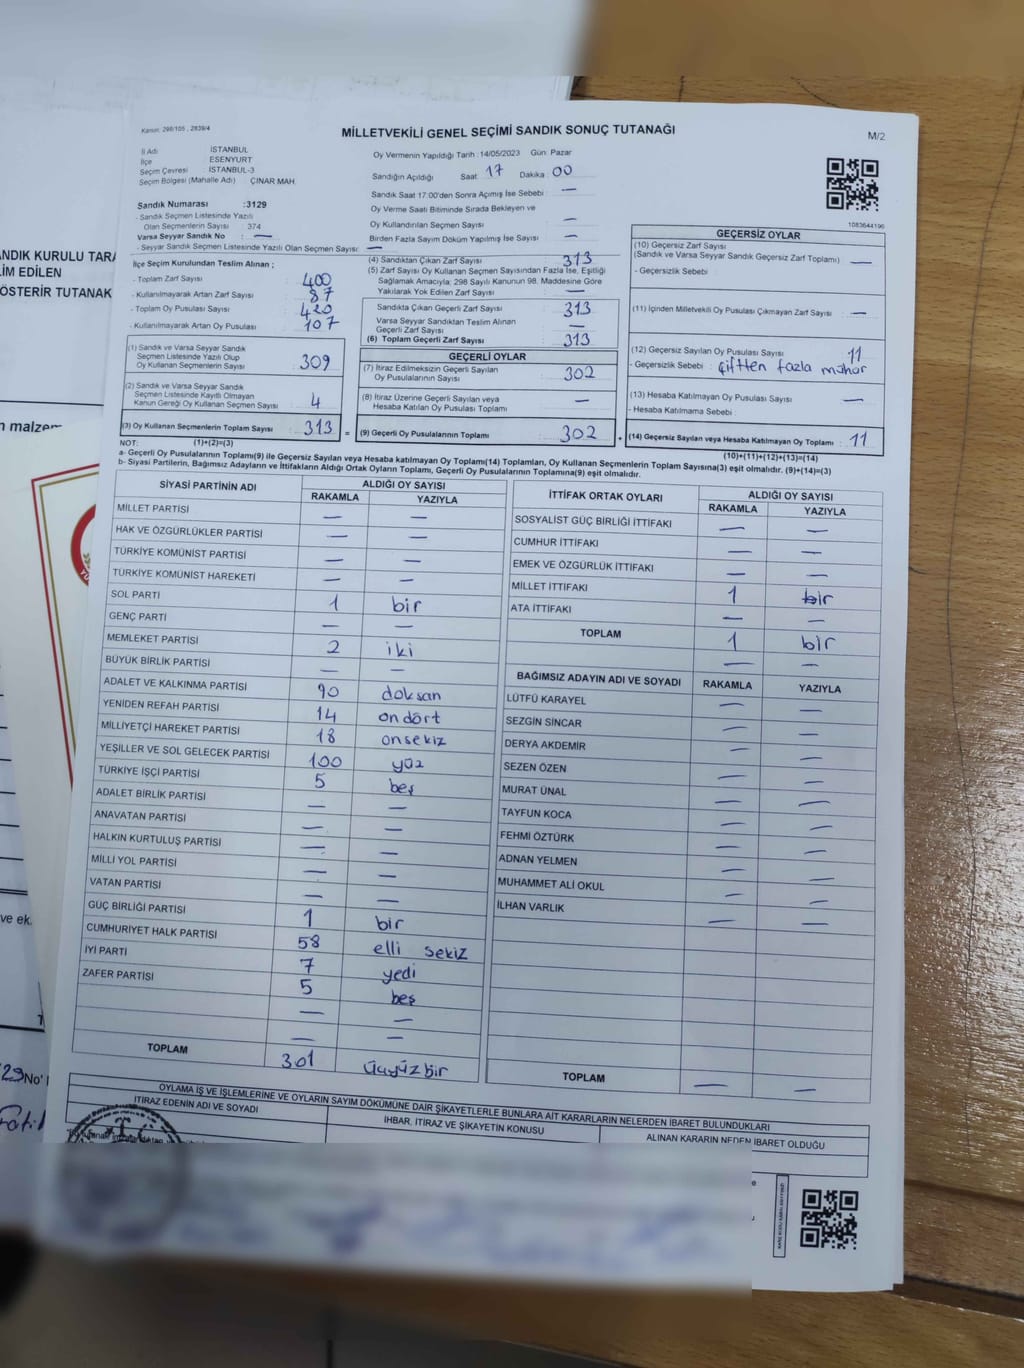 Kanun: 298/105 , 2839/4
MİLLETVEKİLİ GENEL SEÇİMİ SANDIK SONUÇ TUTANAĞI
M/2
İl Adı : İSTANBUL
İlçe : ESENYURT
Seçim Çevresi : İSTANBUL-3
Seçim Bölgesi (Mahalle Adı) : ÇINAR MAH.
Sandık Numarası :3129
- Sandık Seçmen Listesinde Yazılı
Olan Seçmenlerin Sayısı : 374
Varsa Seyyar Sandık No : —
- Seyyar Sandık Seçmen Listesinde Yazılı Olan Seçmen Sayısı: —
Oy Vermenin Yapıldığı Tarih :14/05/2023 Gün: Pazar
Sandığın Açıldığı Saat : 17 Dakika : 00
Sandık Saat 17:00'den Sonra Açımış İse Sebebi : —
Oy Verme Saati Bitiminde Sırada Bekleyen ve
Oy Kullandırılan Seçmen Sayısı : —
Birden Fazla Sayım Döküm Yapılmış İse Sayısı : —
1083644196
İlçe Seçim Kurulundan Teslim Alınan ;
- Toplam Zarf Sayısı : 400
- Kullanılmayarak Artan Zarf Sayısı : 87
- Toplam Oy Pusulası Sayısı : 420
- Kullanılmayarak Artan Oy Pusulası : 107
(1) Sandık ve Varsa Seyyar Sandık
Seçmen Listesinde Yazılı Olup
Oy Kullanan Seçmen Sayısı : 309
(2) Sandık ve Varsa Seyyar Sandık
Seçmen Listesinde Kayıtlı Olmayan
Kanun Gereği Oy Kullanan Seçmen Sayısı : 4
(3) Oy Kullanan Seçmenlerin Toplam Sayısı : 313 =
(4) Sandıktan Çıkan Zarf Sayısı : 313
(5) Zarf Sayısı Oy Kullanan Seçmen Sayısından Fazla İse, Eşitliği
Sağlamak Amacıyla; 298 Sayılı Kanunun 98. Maddesine Göre
Yakılarak Yok Edilen Zarf Sayısı : —
Sandıkta Çıkan Geçerli Zarf Sayısı : 313
Varsa Seyyar Sandıktan Teslim Alınan
Geçerli Zarf Sayısı : —
(6) Toplam Geçerli Zarf Sayısı : 313
GEÇERLİ OYLAR
(7) İtiraz Edilmeksizin Geçerli Sayılan
Oy Pusulalarının Sayısı : 302
(8) İtiraz Üzerine Geçerli Sayılan veya
Hesaba Katılan Oy Pusulası Toplamı : —
(9) Geçerli Oy Pusulalarının Toplamı : 302 +
GEÇERSİZ OYLAR
(10) Geçersiz Zarf Sayısı
(Sandık ve Varsa Seyyar Sandık Geçersiz Zarf Toplamı) : —
- Geçersizlik Sebebi :
(11) İçinden Milletvekili Oy Pusulası Çıkmayan Zarf Sayısı : —
(12) Geçersiz Sayılan Oy Pusulası Sayısı : 11
- Geçersizlik Sebebi : çiftten fazla mühür
(13) Hesaba Katılmayan Oy Pusulası Sayısı : —
- Hesaba Katılmama Sebebi :
(14) Geçersiz Sayılan veya Hesaba Katılmayan Oy Toplamı : 11
NOT: (1)+(2)=(3)
(10)+(11)+(12)+(13)=(14)
a- Geçerli Oy Pusulalarının Toplamı(9) ile Geçersiz Sayılan veya Hesaba katılmayan Oy Toplamı(14) Toplamları, Oy Kullanan Seçmenlerin Toplam Sayısına(3) eşit olmalıdır. (9)+(14)=(3)
b- Siyasi Partilerin, Bağımsız Adayların ve İttifakların Aldığı Ortak Oyların Toplamı, Geçerli Oy Pusulalarının Toplamına(9) eşit olmalıdır.
SİYASİ PARTİNİN ADI ALDIĞI OY SAYISI
RAKAMLA YAZIYLA
MİLLET PARTİSİ — —
HAK VE ÖZGÜRLÜKLER PARTİSİ — —
TÜRKİYE KOMÜNİST PARTİSİ — —
TÜRKİYE KOMÜNİST HAREKETİ — —
SOL PARTİ 1 bir
GENÇ PARTİ — —
MEMLEKET PARTİSİ 2 iki
BÜYÜK BİRLİK PARTİSİ — —
ADALET VE KALKINMA PARTİSİ 90 doksan
YENİDEN REFAH PARTİSİ 14 ondört
MİLLİYETÇİ HAREKET PARTİSİ 18 onsekiz
YEŞİLLER VE SOL GELECEK PARTİSİ 100 yüz
TÜRKİYE İŞÇİ PARTİSİ 5 beş
ADALET BİRLİK PARTİSİ — —
ANAVATAN PARTİSİ — —
HALKIN KURTULUŞ PARTİSİ — —
MİLLİ YOL PARTİSİ — —
VATAN PARTİSİ — —
GÜÇ BİRLİĞİ PARTİSİ 1 bir
CUMHURİYET HALK PARTİSİ 58 elli sekiz
İYİ PARTİ 7 yedi
ZAFER PARTİSİ 5 beş
— —
— —
TOPLAM 301 üçyüzbir
İTTİFAK ORTAK OYLARI ALDIĞI OY SAYISI
RAKAMLA YAZIYLA
SOSYALİST GÜÇ BİRLİĞİ İTTİFAKI — —
CUMHUR İTTİFAKI — —
EMEK VE ÖZGÜRLÜK İTTİFAKI — —
MİLLET İTTİFAKI 1 bir
ATA İTTİFAKI — —
TOPLAM 1 bir
— —
BAĞIMSIZ ADAYIN ADI VE SOYADI RAKAMLA YAZIYLA
LÜTFÜ KARAYEL — —
SEZGİN SİNCAR — —
DERYA AKDEMİR — —
SEZEN ÖZEN — —
MURAT ÜNAL — —
TAYFUN KOCA — —
FEHMİ ÖZTÜRK — —
ADNAN YELMEN — —
MUHAMMET ALİ OKUL — —
İLHAN VARLIK — —
TOPLAM — —
OYLAMA İŞ VE İŞLEMLERİNE VE OYLARIN SAYIM DÖKÜMÜNE DAİR ŞİKAYETLERLE BUNLARA AİT KARARLARIN NELERDEN İBARET BULUNDUKLARI
İTİRAZ EDENİN ADI VE SOYADI
İHBAR, İTİRAZ VE ŞİKAYETİN KONUSU
ALINAN KARARIN NEDEN İBARET OLDUĞU
ANDIK KURULU TARA
LİM EDİLEN
ÖSTERİR TUTANAK
n malzem
ve ek
No'